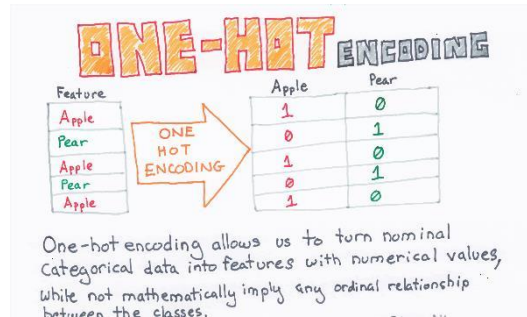 ONE-HOT ENCODING
Feature
Apple
Pear
Apple
Pear
Apple
ONE
HOT
ENCODING
Apple Pear
1 0
0 1
1 0
0 1
1 0
One-hot encoding allows us to turn nominal
categorical data into features with numerical values,
while not mathematically imply any ordinal relationship
between the classes.